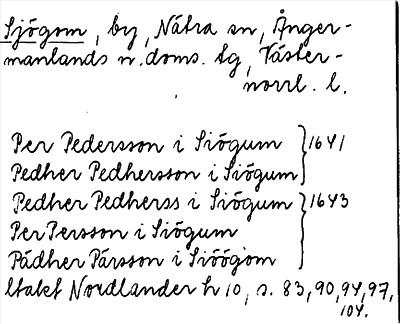 Sjögom, by, Nätra sn, Ånger-
manlands n. doms. tg, Väster-
norrl. l.
Per Pedersson i Siögum } 1641
Pedher Pedhersson i Siögum
Pedher Pedherss i Siögum } 1643
Per Persson i Siögum
Pädher Pärsson i Siöögom
ltakt Nordlander h 10, s. 83, 90, 94, 97,
104.